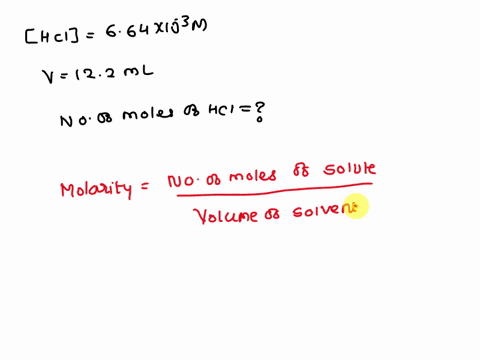 [HCl] = 6.64 X10^-3 M
V = 12.2 mL
No. of moles of HCl = ?
Molarity = No. of moles of solute
Volume of solvent